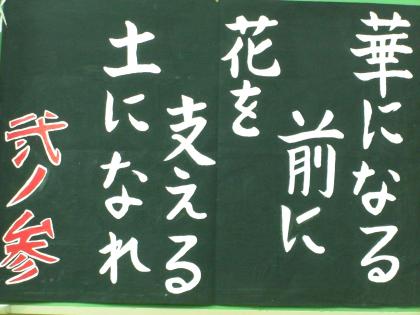 華になる
前に
花を
支える
土になれ
弐ノ参